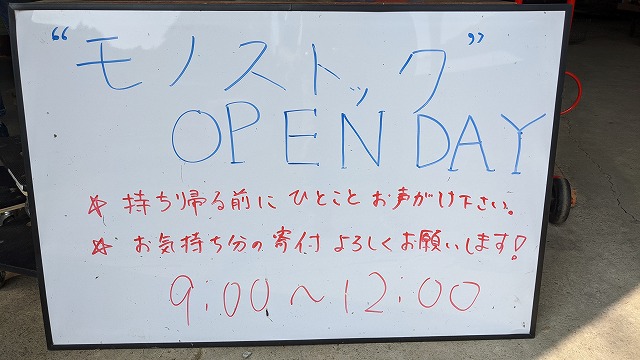 “モノストック”
OPEN DAY
☆ 持ち帰る前に ひとこと お声がけ下さい。
☆ お気持ち分の寄付 よろしくお願いします!
9:00～12:00